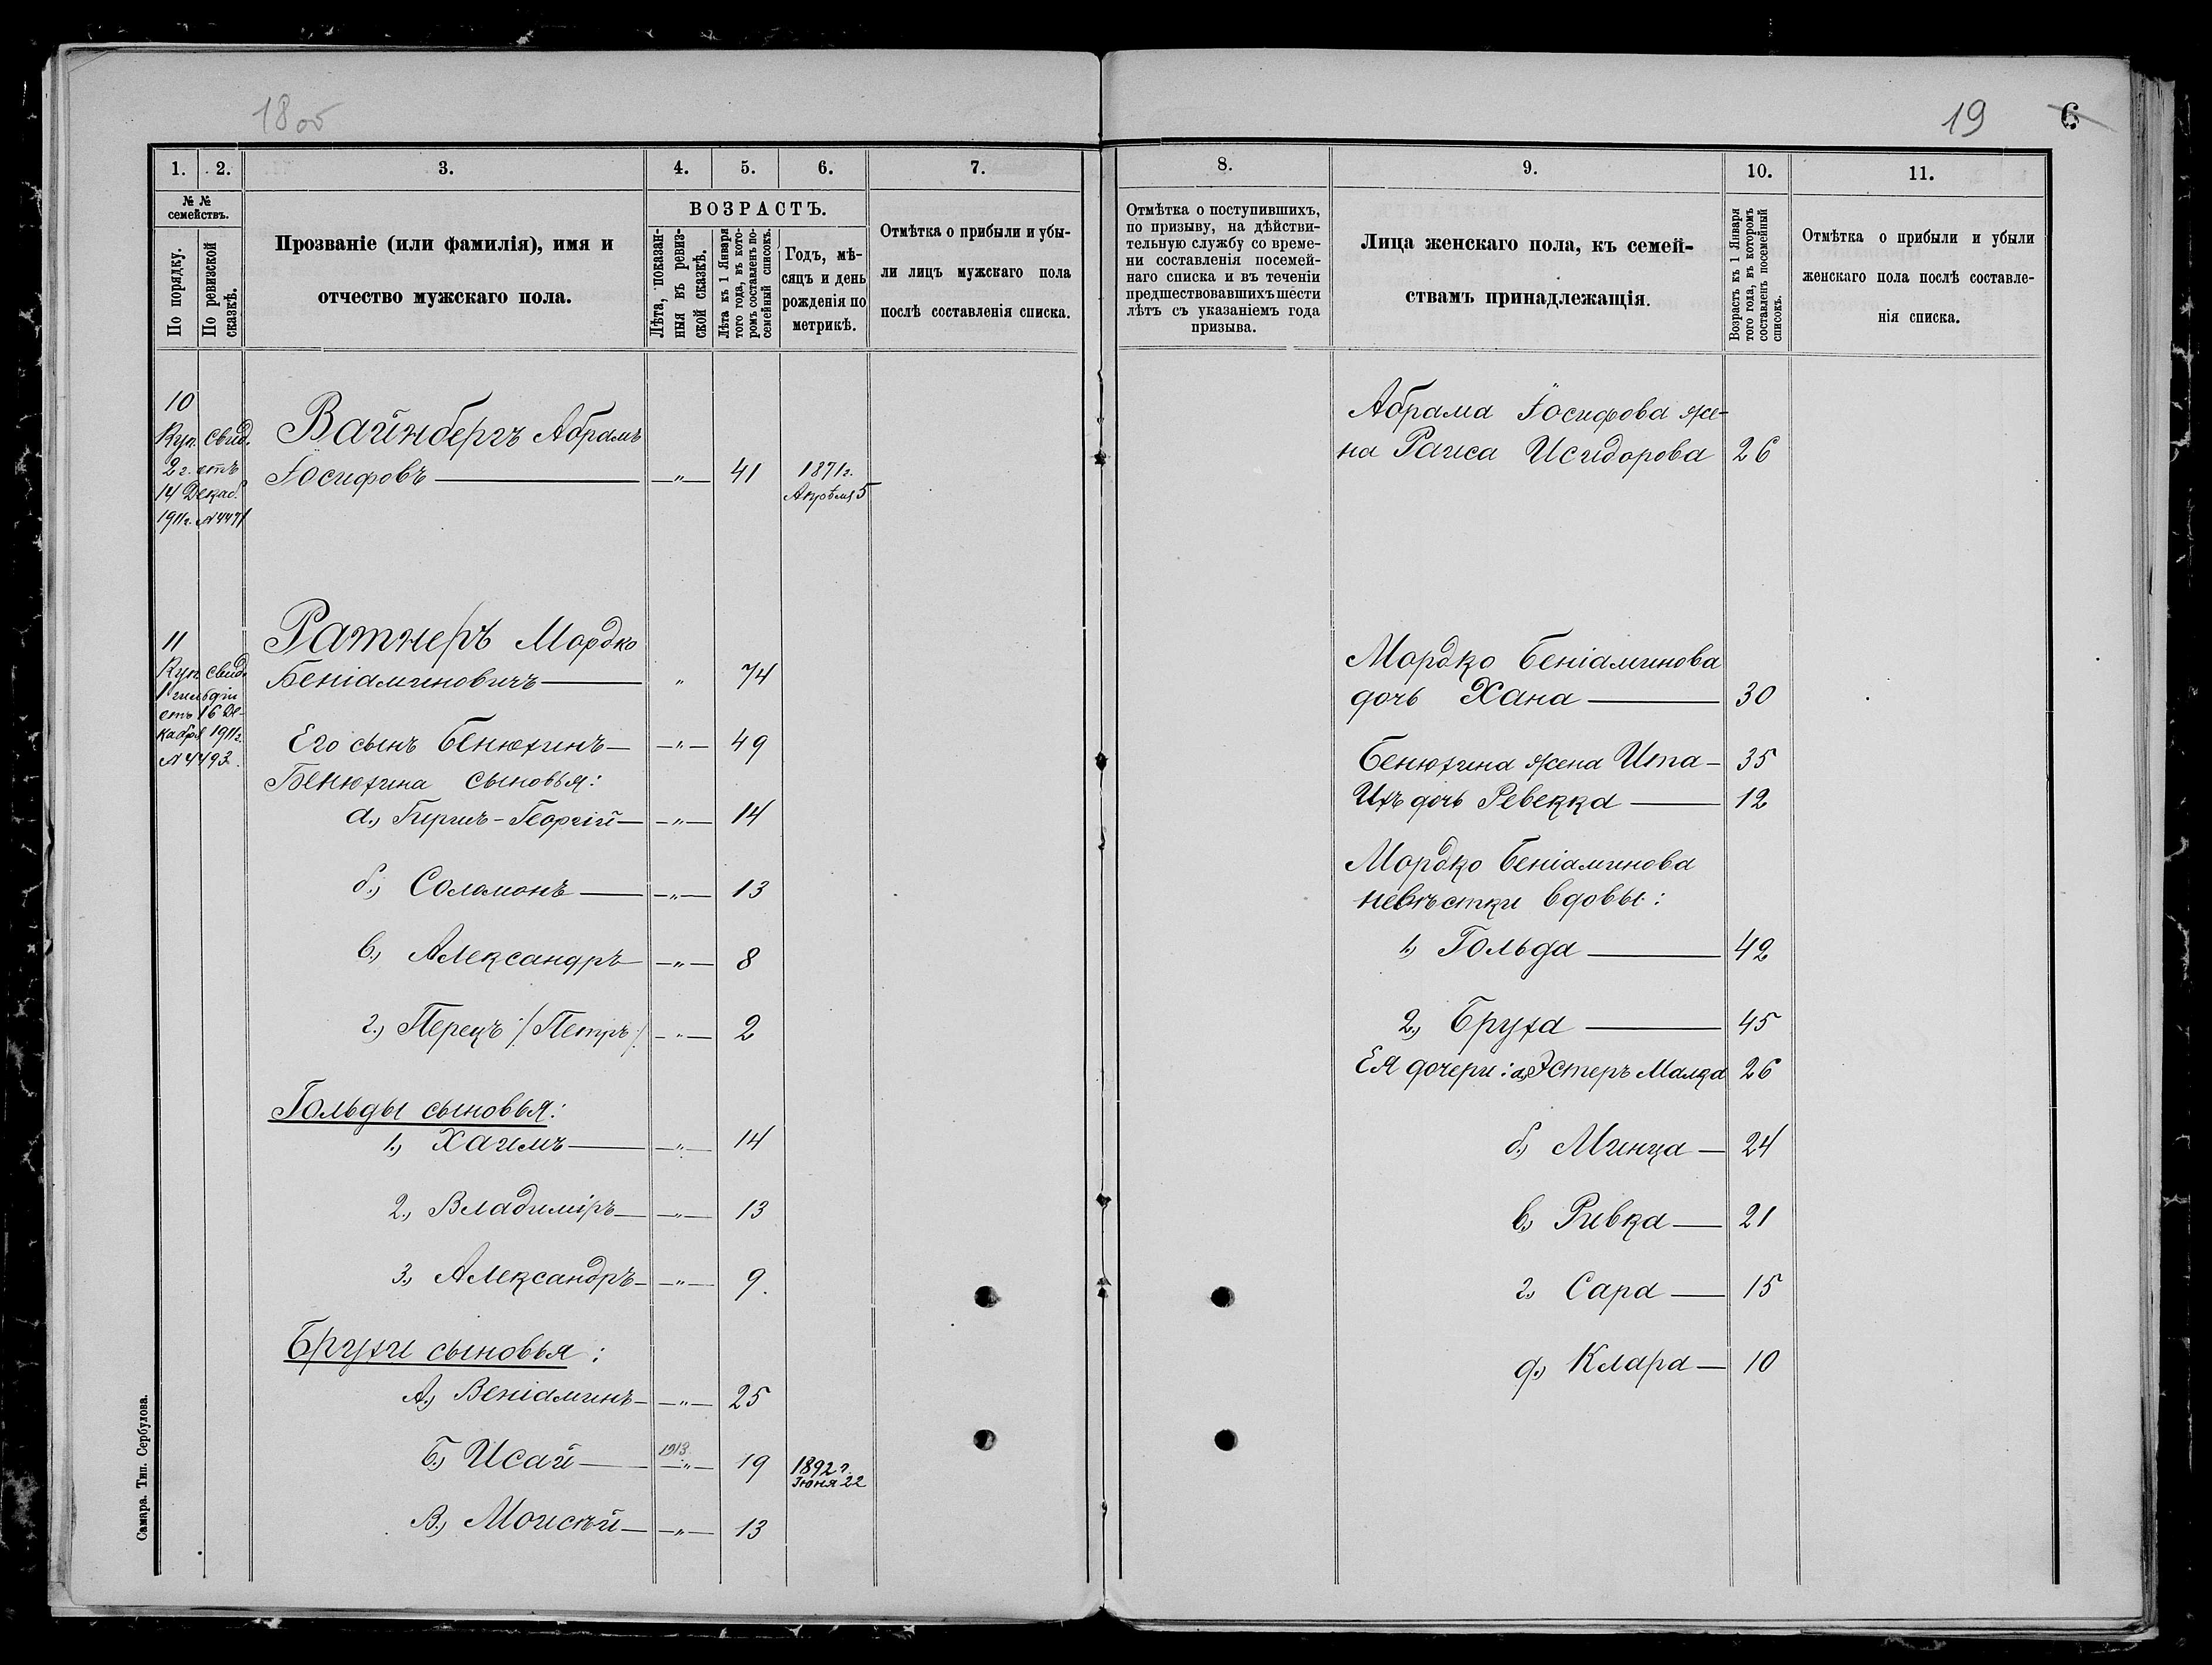 18об
1.
2.
3.
4.
5.
6.
7.
№ №
семействъ.
По порядку.
По ревизской
сказкѣ.
Прозваніе (или фамилія), имя и
отчество мужскаго пола.
ВОЗРАСТЪ.
Лѣта, показан-
ныя въ ревиз-
ской сказкѣ.
Лѣта къ 1 Января
того года, въ кото-
ромъ составленъ по-
семейный списокъ.
Годъ, мѣ-
сяцъ и день
рожденія по
метрикѣ.
Отмѣтка о прибыли и убы-
ли лицъ мужскаго пола
послѣ составленія списка.
10
Куп. свид.
2 г. отъ
14 Декаб.
1911г. № 4471
Вайнбергъ Абрамъ
Іосифовъ — „ — 41 1871г.
Апрѣля 5
11
Куп. свид.
1 гильдіи
отъ 16 Де-
кабря 1911г.
№ 4493.
Ратнеръ Мордко
Беніаминовичъ — „ 74
Его сынъ Бенюхинъ — „ — 49
Бенюхина сыновья:
а.) Гиршъ-Георгій — „ — 14
б.) Соломонъ — „ — 13
в.) Александръ — „ — 8
г.) Перецъ /:Петръ:/ — „ — 2
Гольды сыновья:
1.) Хаимъ — „ — 14
2.) Владиміръ — „ — 13
3.) Александръ — „ — 9.
Брухи сыновья:
А.) Веніаминъ — „ — 25
Б.) Исай — 1913 „ — 19 1892 г.
Іюня 22
В.) Моисѣй — „ — 13
Самара. Тип. Сербулова.
19 6
8.
9.
10.
11.
Отмѣтка о поступившихъ,
по призыву, на дѣйстви-
тельную службу со време-
ни составленія посемей-
наго списка и въ теченіи
предшествовавшихъ шести
лѣтъ съ указаніемъ года
призыва.
Лица женскаго пола, къ семей-
ствамъ принадлежащія.
Возрастъ къ 1 Января
того года, въ которомъ
составленъ посемейный
списокъ.
Отмѣтка о прибыли и убыли
женскаго пола послѣ составле-
нія списка.
Абрама Іосифова же-
на Раиса Исидорова 26
Мордко Беніаминова
дочь Хана — 30
Бенюхина жена Ита — 35
Ихъ дочь Ревекка — 12
Мордко Беніаминова
невѣстки вдовы:
1.) Гольда — 42
2.) Бруха — 45
Ея дочери: а.) Эстеръ Малка 26
б.) Минца — 24
в.) Ривка — 21
г.) Сара — 15
д.) Клара — 10